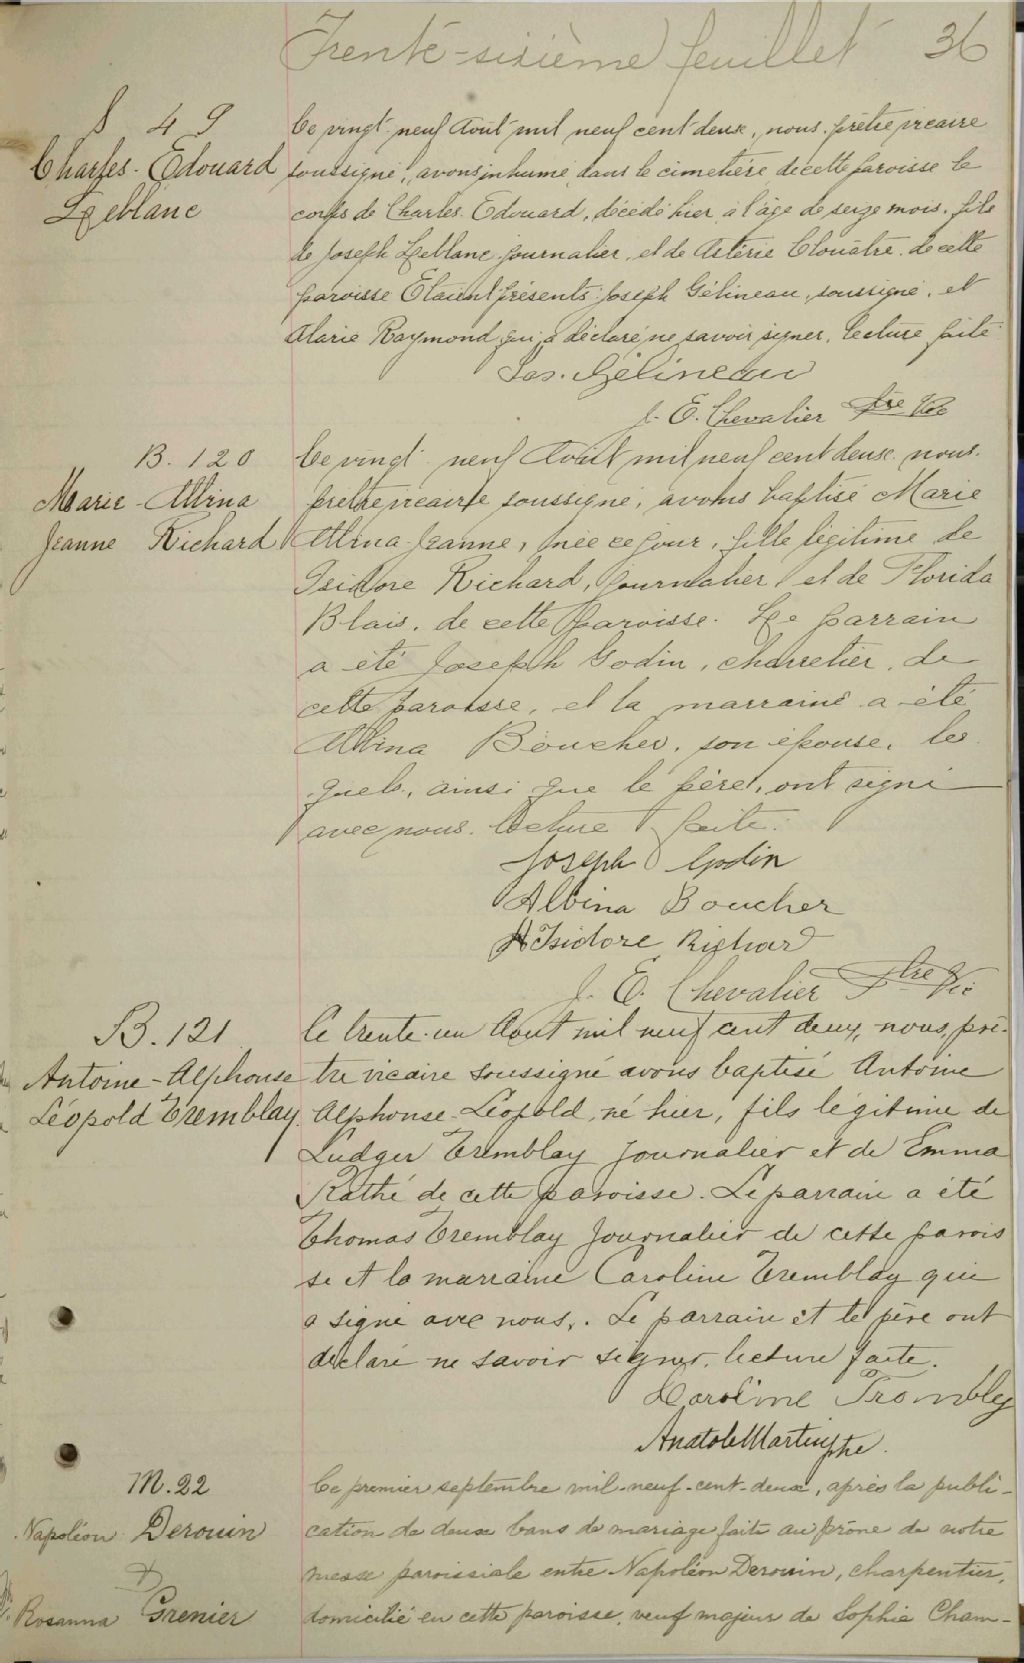 Trente-sixième feuillet 36
S 49
Charles-Edouard
Leblanc
Ce vingt-neuf Août mil neuf cent deux, nous, prêtre vicaire
soussigné, avons inhumé dans le cimetière de cette paroisse le
corps de Charles-Edouard, décédé hier à l'âge de seize mois, fils
de Joseph Leblanc journalier, et de Astérie Clouâtre, de cette
paroisse Etaient présents: Joseph Gélineau, soussigné, et
Marie Raymond qui a déclaré ne savoir signer, lecture faite
Jos. Gélineau
J. E. Chevalier Ptre Vic
B. 120
Marie-Albina
Jeanne Richard
Ce vingt neuf Août mil neuf cent deux nous.
prêtre vicaire soussigné, avons baptisé Marie
Albina-Jeanne, née ce jour, fille légitime de
Isidore Richard, journalier et de Florida
Blais, de cette paroisse. Le parrain
a été Joseph Godin, charretier, de
cette paroisse, et la marraine a été
Albina Boucher, son épouse, les
quels, ainsi que le père, ont signé
avec nous. lecture faite.
Joseph Godin
Albina Boucher
Isidore Richard
J. E. Chevalier Ptre Vic
B. 121
Antoine-Alphonse
Léopold Tremblay
Ce trente-un Aout mil neuf cent deux, nous, prê-
tre vicaire soussigné avons baptisé Antoine
Alphonse-Léopold, né hier, fils légitime de
Ludger Tremblay journalier et de Emma
Rathé de cette paroisse. Le parrain a été
Thomas Tremblay journalier de cette parois
se et la marraine Caroline Tremblay qui
a signé avec nous,. Le parrain et le père ont
déclaré ne savoir signer. lecture faite.
Caroline Trombley
Anatole Martin ptre.
M. 22
Napoléon Derouin
&
Rosanna Grenier
Ce premier septembre mil-neuf-cent-deux, après la publi-
cation de deux bans de mariage faite au prône de notre
messe paroissiale entre Napoléon Derouin, charpentier,
domicilié en cette paroisse, veuf majeur de Sophie Cham-